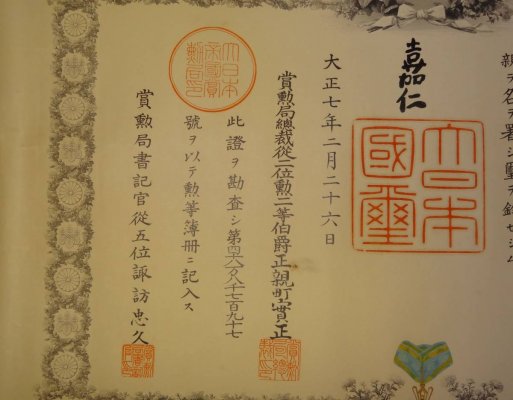 親ラ名ヲ署シ璽ヲ鈐セシム
嘉仁
大日本
國璽
大正七年二月二十六日
賞勲局總裁從二位勲一等伯爵正親町實正
大日本
帝國賞
勲局印
此證ヲ勘査シ第四六八千七百九十七
號ヲ以テ勲等簿册ニ記入ス
賞勲局書記官從五位諏訪忠久